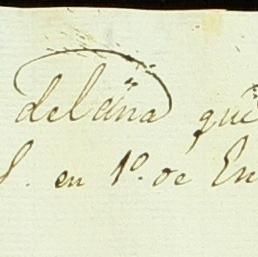 del ana que
S. en 1º. de En